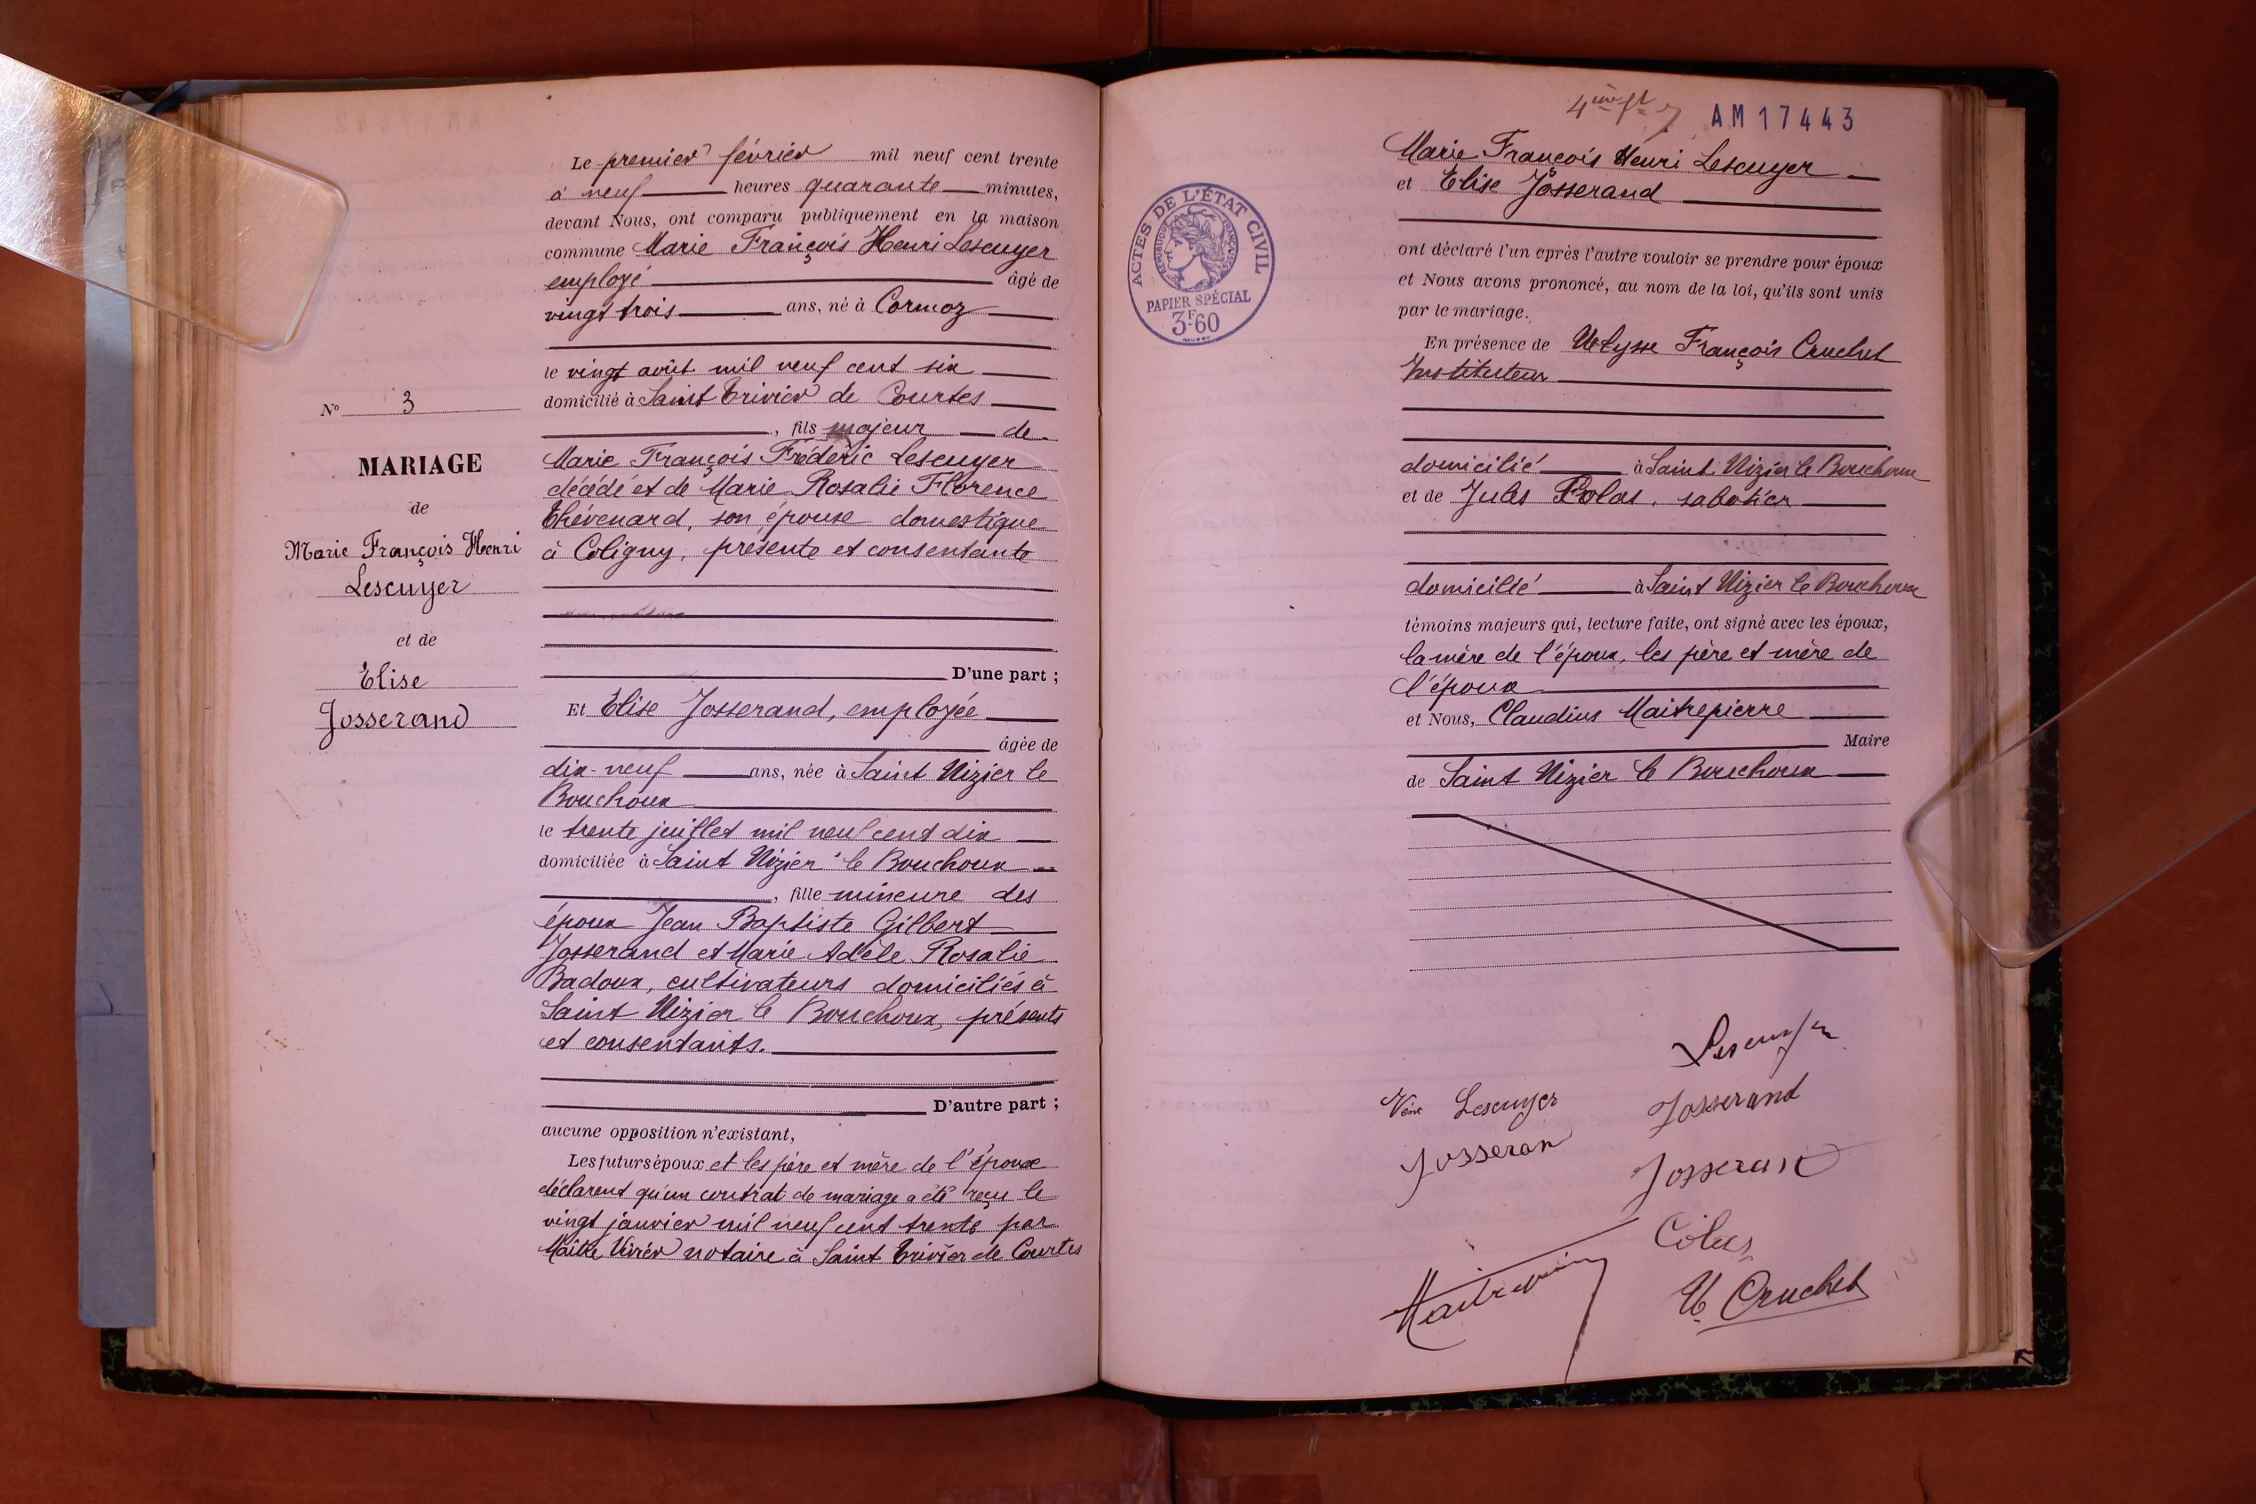 N° 3
MARIAGE
de
Marie François Henri
Lescuyer
et de
Elise
Josserand
Le premier février mil neuf cent trente
à neuf heures quarante minutes,
devant Nous, ont comparu publiquement en la maison
commune Marie François Henri Lescuyer
employé âgé de
vingt trois ans, né à Cormoz
le vingt août mil neuf cent six
domicilié à Saint Trivier de Courtes
, fils majeur de
Marie François Frédéric Lescuyer
décédé et de Marie Rosalie Florence
Thévenard, son épouse domestique
à Coligny, présente et consentante
D'une part ;
Et Elise Josserand, employée
âgée de
dix-neuf ans, née à Saint Nizier le
Bouchoux
le trente juillet mil neuf cent dix
domiciliée à Saint Nizier le Bouchoux
, fille mineure des
époux Jean Baptiste Gilbert
Josserand et Marie Adèle Rosalie
Badoux, cultivateurs domiciliés à
Saint Nizier le Bouchoux, présents
et consentants.
D'autre part ;
aucune opposition n'existant,
Les futurs époux et les père et mère de l'épouse
déclarent qu'un contrat de mariage a été reçu le
vingt janvier mil neuf cent trente par
Maître notaire à Saint Trivier de Courtes
AM 17443
Marie François Henri Lescuyer
et Elise Josserand
ont déclaré l'un après l'autre vouloir se prendre pour époux
et Nous avons prononcé, au nom de la loi, qu'ils sont unis
par le mariage.
En présence de Ulysse François Cruchet
Instituteur
domicilié à Saint Nizier le Bouchoux
et de Jules sabotier
domicilié à Saint Nizier le Bouchoux
témoins majeurs qui, lecture faite, ont signé avec les époux,
la mère de l'époux, les père et mère de
l'épouse
et Nous, Claudius Maitrepierre
Maire
de Saint Nizier le Bouchoux
ACTES DE L'ÉTAT CIVIL
RÉPUBLIQUE FRANÇAISE
PAPIER SPÉCIAL
3F60
Lescuyer
Vve Lescuyer
Josserand
Josseran
Josseran
Maitrepierre
U. Cruchet